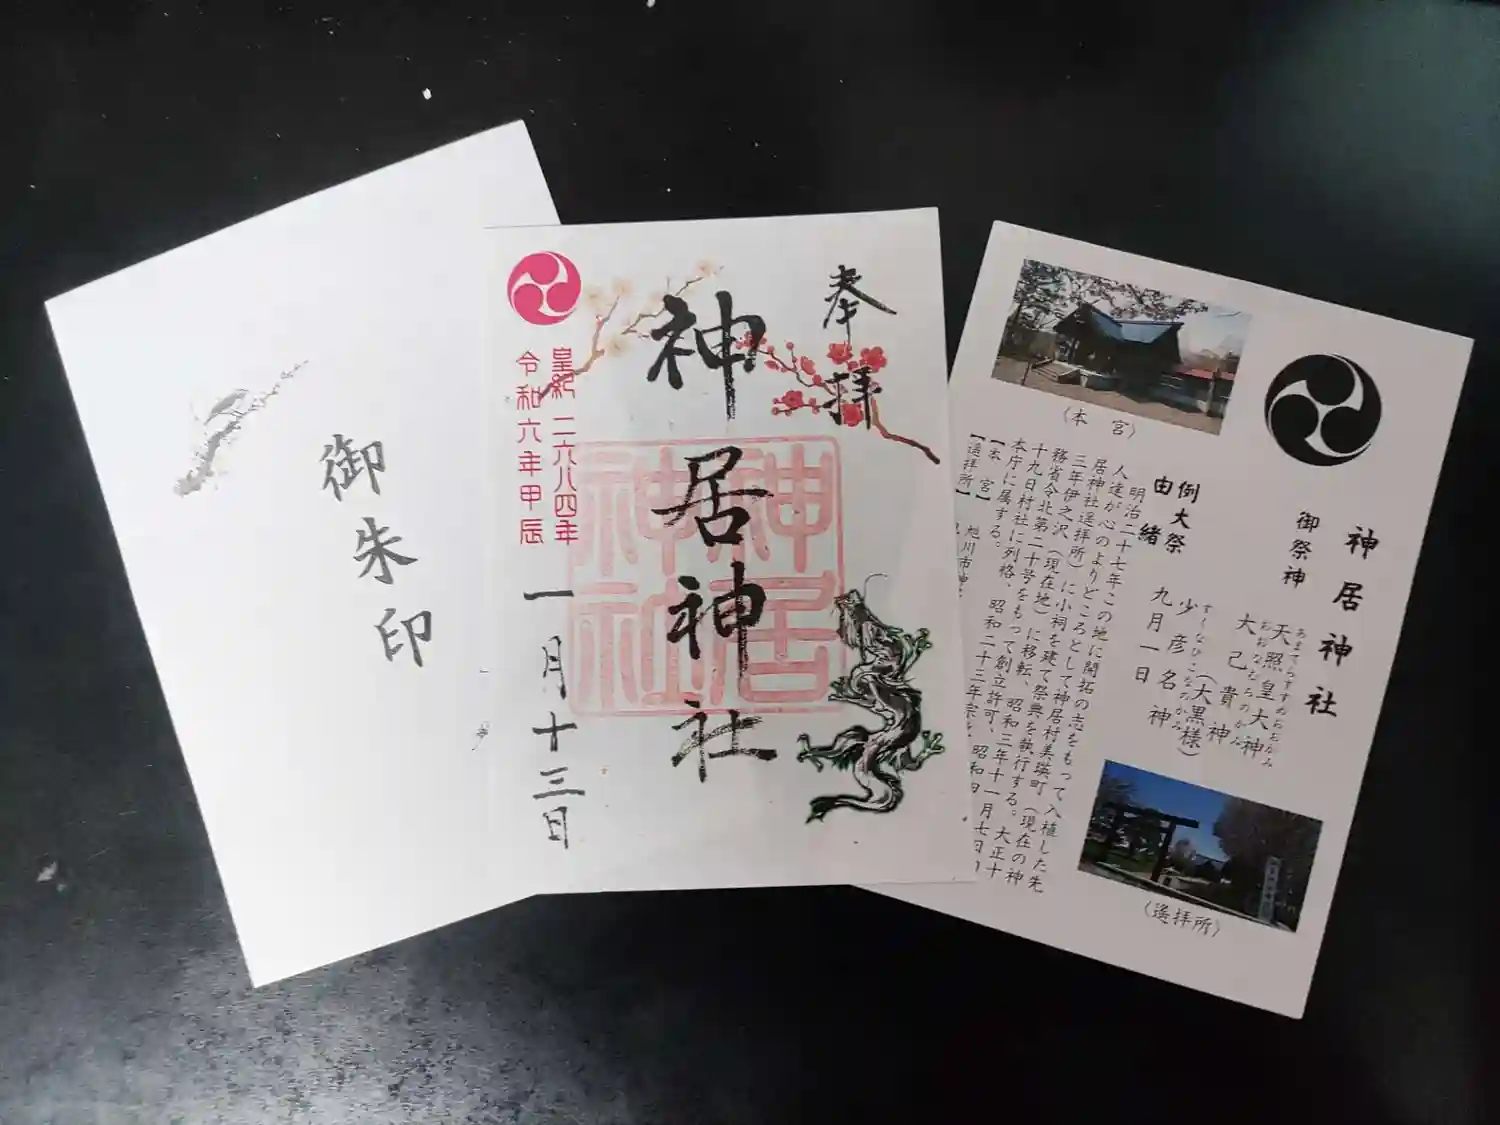 御朱印
奉拝
神居神社
神居神社
皇紀二六八四年
令和六年甲辰
一月十三日
神居神社
御祭神
あまてらすすめおおがみ
天照皇大神
おおなむちのかみ
大己貴神
(大黒様)
すくなひこなのかみ
少彦名神
例大祭 九月一日
由緒
明治二十七年この地に開拓の志をもって入植した先
人達が心のよりどころとして神居村美瑛町(現在の神
居神社遥拝所)に小祠を建て祭典を執行する。大正十
三年伊之沢(現在地)に移転、昭和三年十一月七日
務省令北第二十号をもって創立許可、
十九日村社に列格、昭和二十三年宗
本庁に属する。
【本宮】
【遥拝所】 旭川市神
(本宮)
(遙拝所)